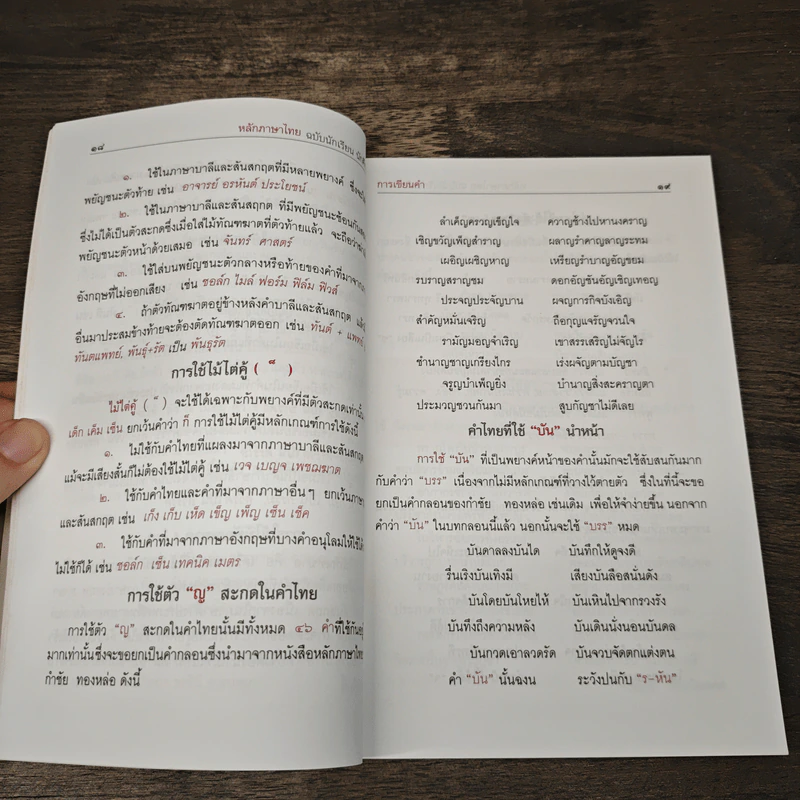 ๑๘
หลักภาษาไทย ฉบับนักเรียน
๑. ใช้ในภาษาบาลีและสันสกฤตที่มีหลายพยางค์
พยัญชนะตัวท้าย เช่น อาจารย์ อรหันต์ ประโยชน์
๒. ใช้ในภาษาบาลีและสันสกฤต ที่มีพยัญชนะซ้อนกัน
ซึ่งไม่ได้เป็นตัวสะกดซึ่งเมื่อใส่ไม้ทัณฑฆาตที่ตัวท้ายแล้ว จะถือว่า
พยัญชนะตัวหน้าด้วยเสมอ เช่น จันทร์ ศาสตร์
๓. ใช้ใส่บนพยัญชนะตัวกลางหรือท้ายของคำที่มาจาก
อังกฤษที่ไม่ออกเสียง เช่น ชอล์ก ไมล์ ฟอร์ม ฟิล์ม ฟิวส์
๔. ถ้าตัวทัณฑฆาตอยู่ข้างหลังคำบาลีและสันสกฤต
อื่นมาประสมข้างท้ายจะต้องตัดทัณฑฆาตออก เช่น ทันต์ + แพทย์
ทันตแพทย์, พันธุ์+รัต เป็น พันธุรัต
การใช้ไม้ไต่คู้ ( ็ )
ไม้ไต่คู้ ( ็ ) จะใช้ได้เฉพาะกับพยางค์ที่มีตัวสะกดเท่านั้น
เด็ก เค็ม เซ็น ยกเว้นคำว่า ก็ การใช้ไม้ไต่คู้มีหลักเกณฑ์การใช้ดังนี้
๑. ไม่ใช้กับคำไทยที่แผลงมาจากภาษาบาลีและสันสกฤต
แม้จะมีเสียงสั้นก็ไม่ต้องใช้ไม้ไต่คู้ เช่น เวจ เบญจ เพชฌฆาต
๒. ใช้กับคำไทยและคำที่มาจากภาษาอื่นๆ ยกเว้นภาษา
และสันสกฤต เช่น เก็ง เก็บ เห็ด เข็ญ เพ็ญ เซ็น เช็ค
๓. ใช้กับคำที่มาจากภาษาอังกฤษที่บางคำอนุโลมให้ใช้
ไม่ใช้ก็ได้ เช่น ชอล์ก เซ็น เทคนิค เมตร
การใช้ตัว “ญ” สะกดในคำไทย
การใช้ตัว “ญ” สะกดในคำไทยนั้นมีทั้งหมด ๔๖ คำที่ใช้กันอยู่
มากเท่านั้นซึ่งจะขอยกเป็นคำกลอนซึ่งนำมาจากหนังสือหลักภาษาไทย
กำชัย ทองหล่อ ดังนี้
การเขียนคำ ๑๙
ลำเค็ญครวญเข็ญใจ ควาญช้างไปหานงคราญ
เชิญขวัญเพ็ญสำราญ ผลาญรำคาญลาญระทม
เผอิญเผชิญหาญ เหรียญรำบาญอัญขยม
รบราญสราญชม ดอกอัญชันอัญเชิญเทอญ
ประจญประจัญบาน ผจญการกิจบังเอิญ
สำคัญหมั่นเจริญ ถือกุญแจรัญจวนใจ
รามัญมอญจำเริญ เขาสรรเสริญไม่จัญไร
ชำนาญชาญเกรียงไกร เร่งผจัญตามบัญชา
จรูญบำเพ็ญยิ่ง บำนาญสิ่งสะคราญตา
ประมวญชวนกันมา สูบกัญชาไม่ดีเลย
คำไทยที่ใช้ “บัน” นำหน้า
การใช้ “บัน” ที่เป็นพยางค์หน้าของคำนั้นมักจะใช้สับสนกันมาก
กับคำว่า “บรร” เนื่องจากไม่มีหลักเกณฑ์ที่วางไว้ตายตัว ซึ่งในที่นี้จะขอ
ยกเป็นคำกลอนของกำชัย ทองหล่อ เช่นเดิม เพื่อให้จำง่ายขึ้น นอกจาก
คำว่า “บัน” ในบทกลอนนี้แล้ว นอกนั้นจะใช้ “บรร” หมด
บันดาลลงบันได บันทึกให้ดูจงดี
รื่นเริงบันเทิงมี เสียงบันลือสนั่นดัง
บันโดยบันโหยไห้ บันเหินไปจากรวงรัง
บันทึงถึงความหลัง บันเดินนั่งนอนบันดล
บันกวดเอาลวดรัด บันจวบจัดตกแต่งตน
คำ “บัน” นั้นฉงน ระวังปนกับ “ร-หัน”